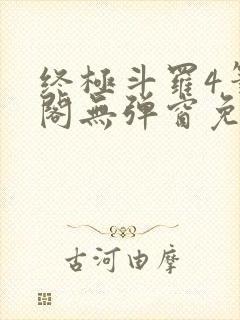 终極斗羅4
閣無彈窗免
古河由摩